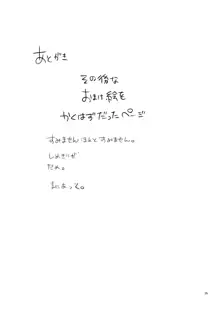 あとがき
その後な
おまけ絵を
かくはずだったページ
すみません ほんとすみません。
しめきりが
だめ。